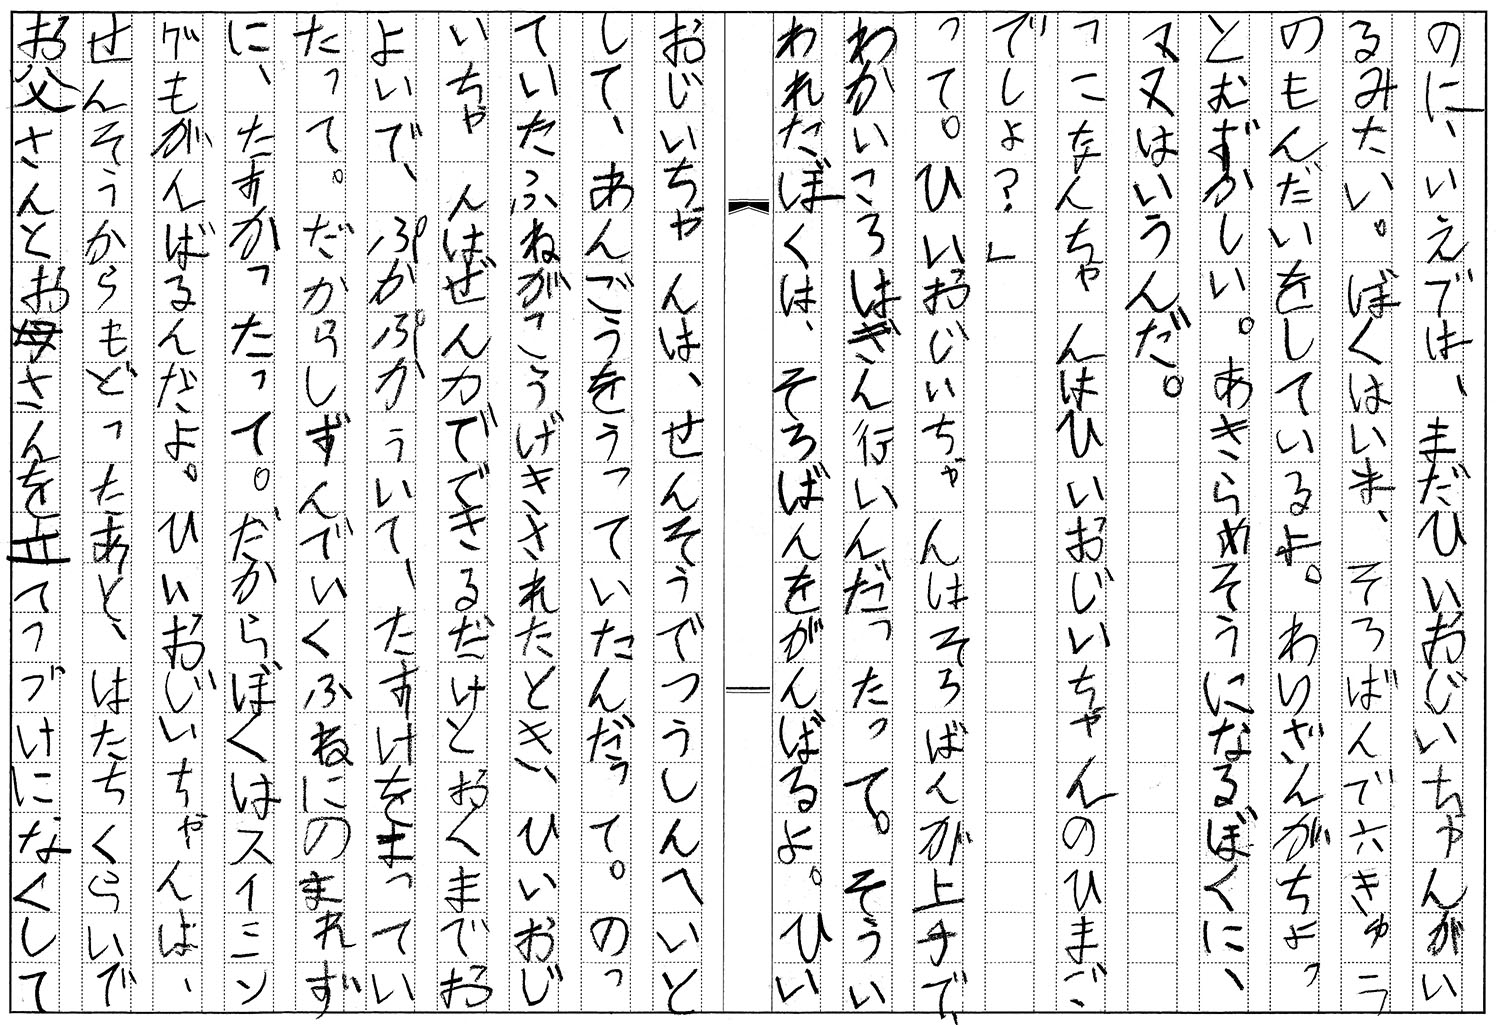 のに、いえでは、まだひいおじいちゃんがい
るみたい。ぼくはいま、そろばんで六きゅう
のもんだいをしているよ。わりざんがちょっ
とむずかしい。あきらめそうになるぼくに、
ママはいうんだ。
「こなんちゃんはひいおじいちゃんのひまご
でしょ?」
って。ひいおじいちゃんはそろばんが上手で、
わかいころはぎん行いんだったって。そうい
われたぼくは、そろばんをがんばるよ。ひい
おじいちゃんは、せんそうでつうしんへいと
して、あんごうをうっていたんだって。のっ
ていたふねがこうげきされたとき、ひいおじ
いちゃんはぜん力でできるだけとおくまでお
よいで、ぷかぷかういて、たすけをまってい
たって。だからしずんでいくふねにのまれず
に、たすかったって。だからぼくはスイミン
グもがんばるんだよ。ひいおじいちゃんは、
せんそうからもどったあと、はたちくらいで
お父さんとお母さんを立てつづけになくして